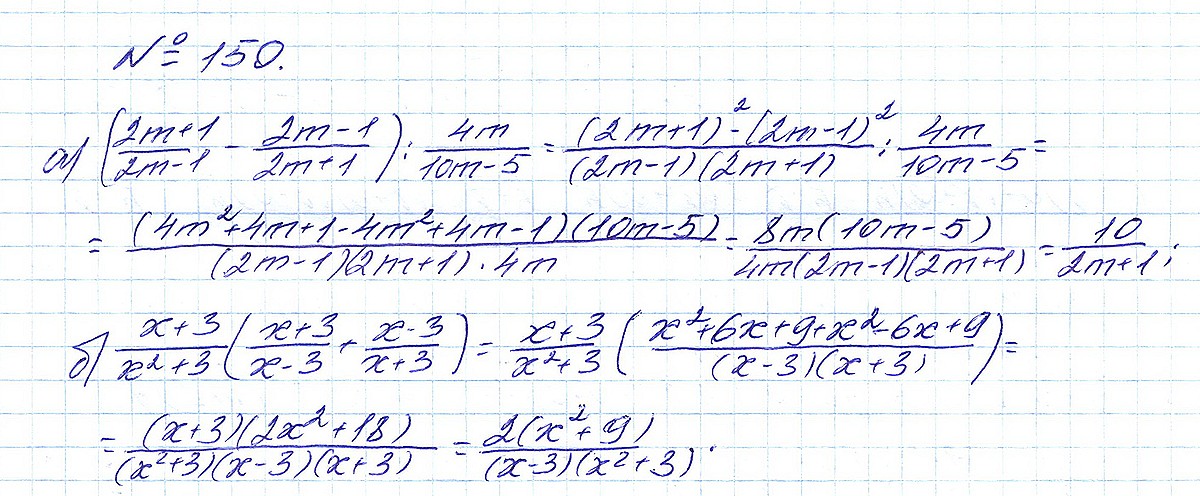 № 150.
а) ((2m+1)/(2m-1) - (2m-1)/(2m+1)) : 4m/(10m-5) = ((2m+1)² - (2m-1)²)/((2m-1)(2m+1)) : 4m/(10m-5) =
= ((4m²+4m+1-4m²+4m-1)(10m-5))/((2m-1)(2m+1)·4m) = 8m(10m-5)/(4m(2m-1)(2m+1)) = 10/(2m+1);
б) (x+3)/(x²+3) ((x+3)/(x-3) + (x-3)/(x+3)) = (x+3)/(x²+3) ((x²+6x+9+x²-6x+9)/((x-3)(x+3))) =
= ((x+3)(2x²+18))/((x²+3)(x-3)(x+3)) = 2(x²+9)/((x-3)(x²+3)).